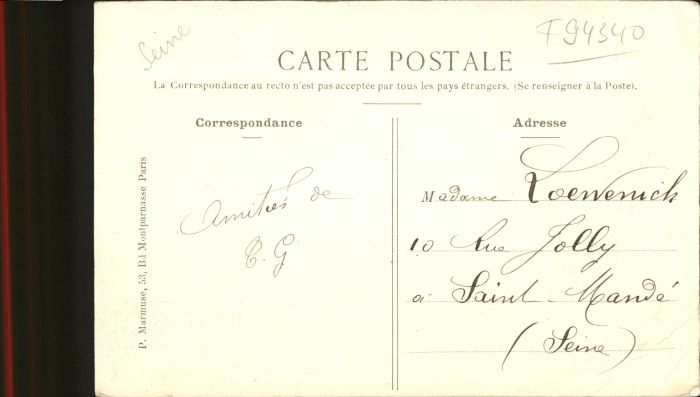 Seine
F94340
CARTE POSTALE
La Correspondance au recto n'est pas acceptée par tous les pays étrangers. (Se renseigner à la Poste).
Correspondance
Amitiés de
T. G
P. Marmuse, 53, Bd Montparnasse Paris
Adresse
Madame Loewenick
10 Rue Jolly
à Saint-Mandé
(Seine)